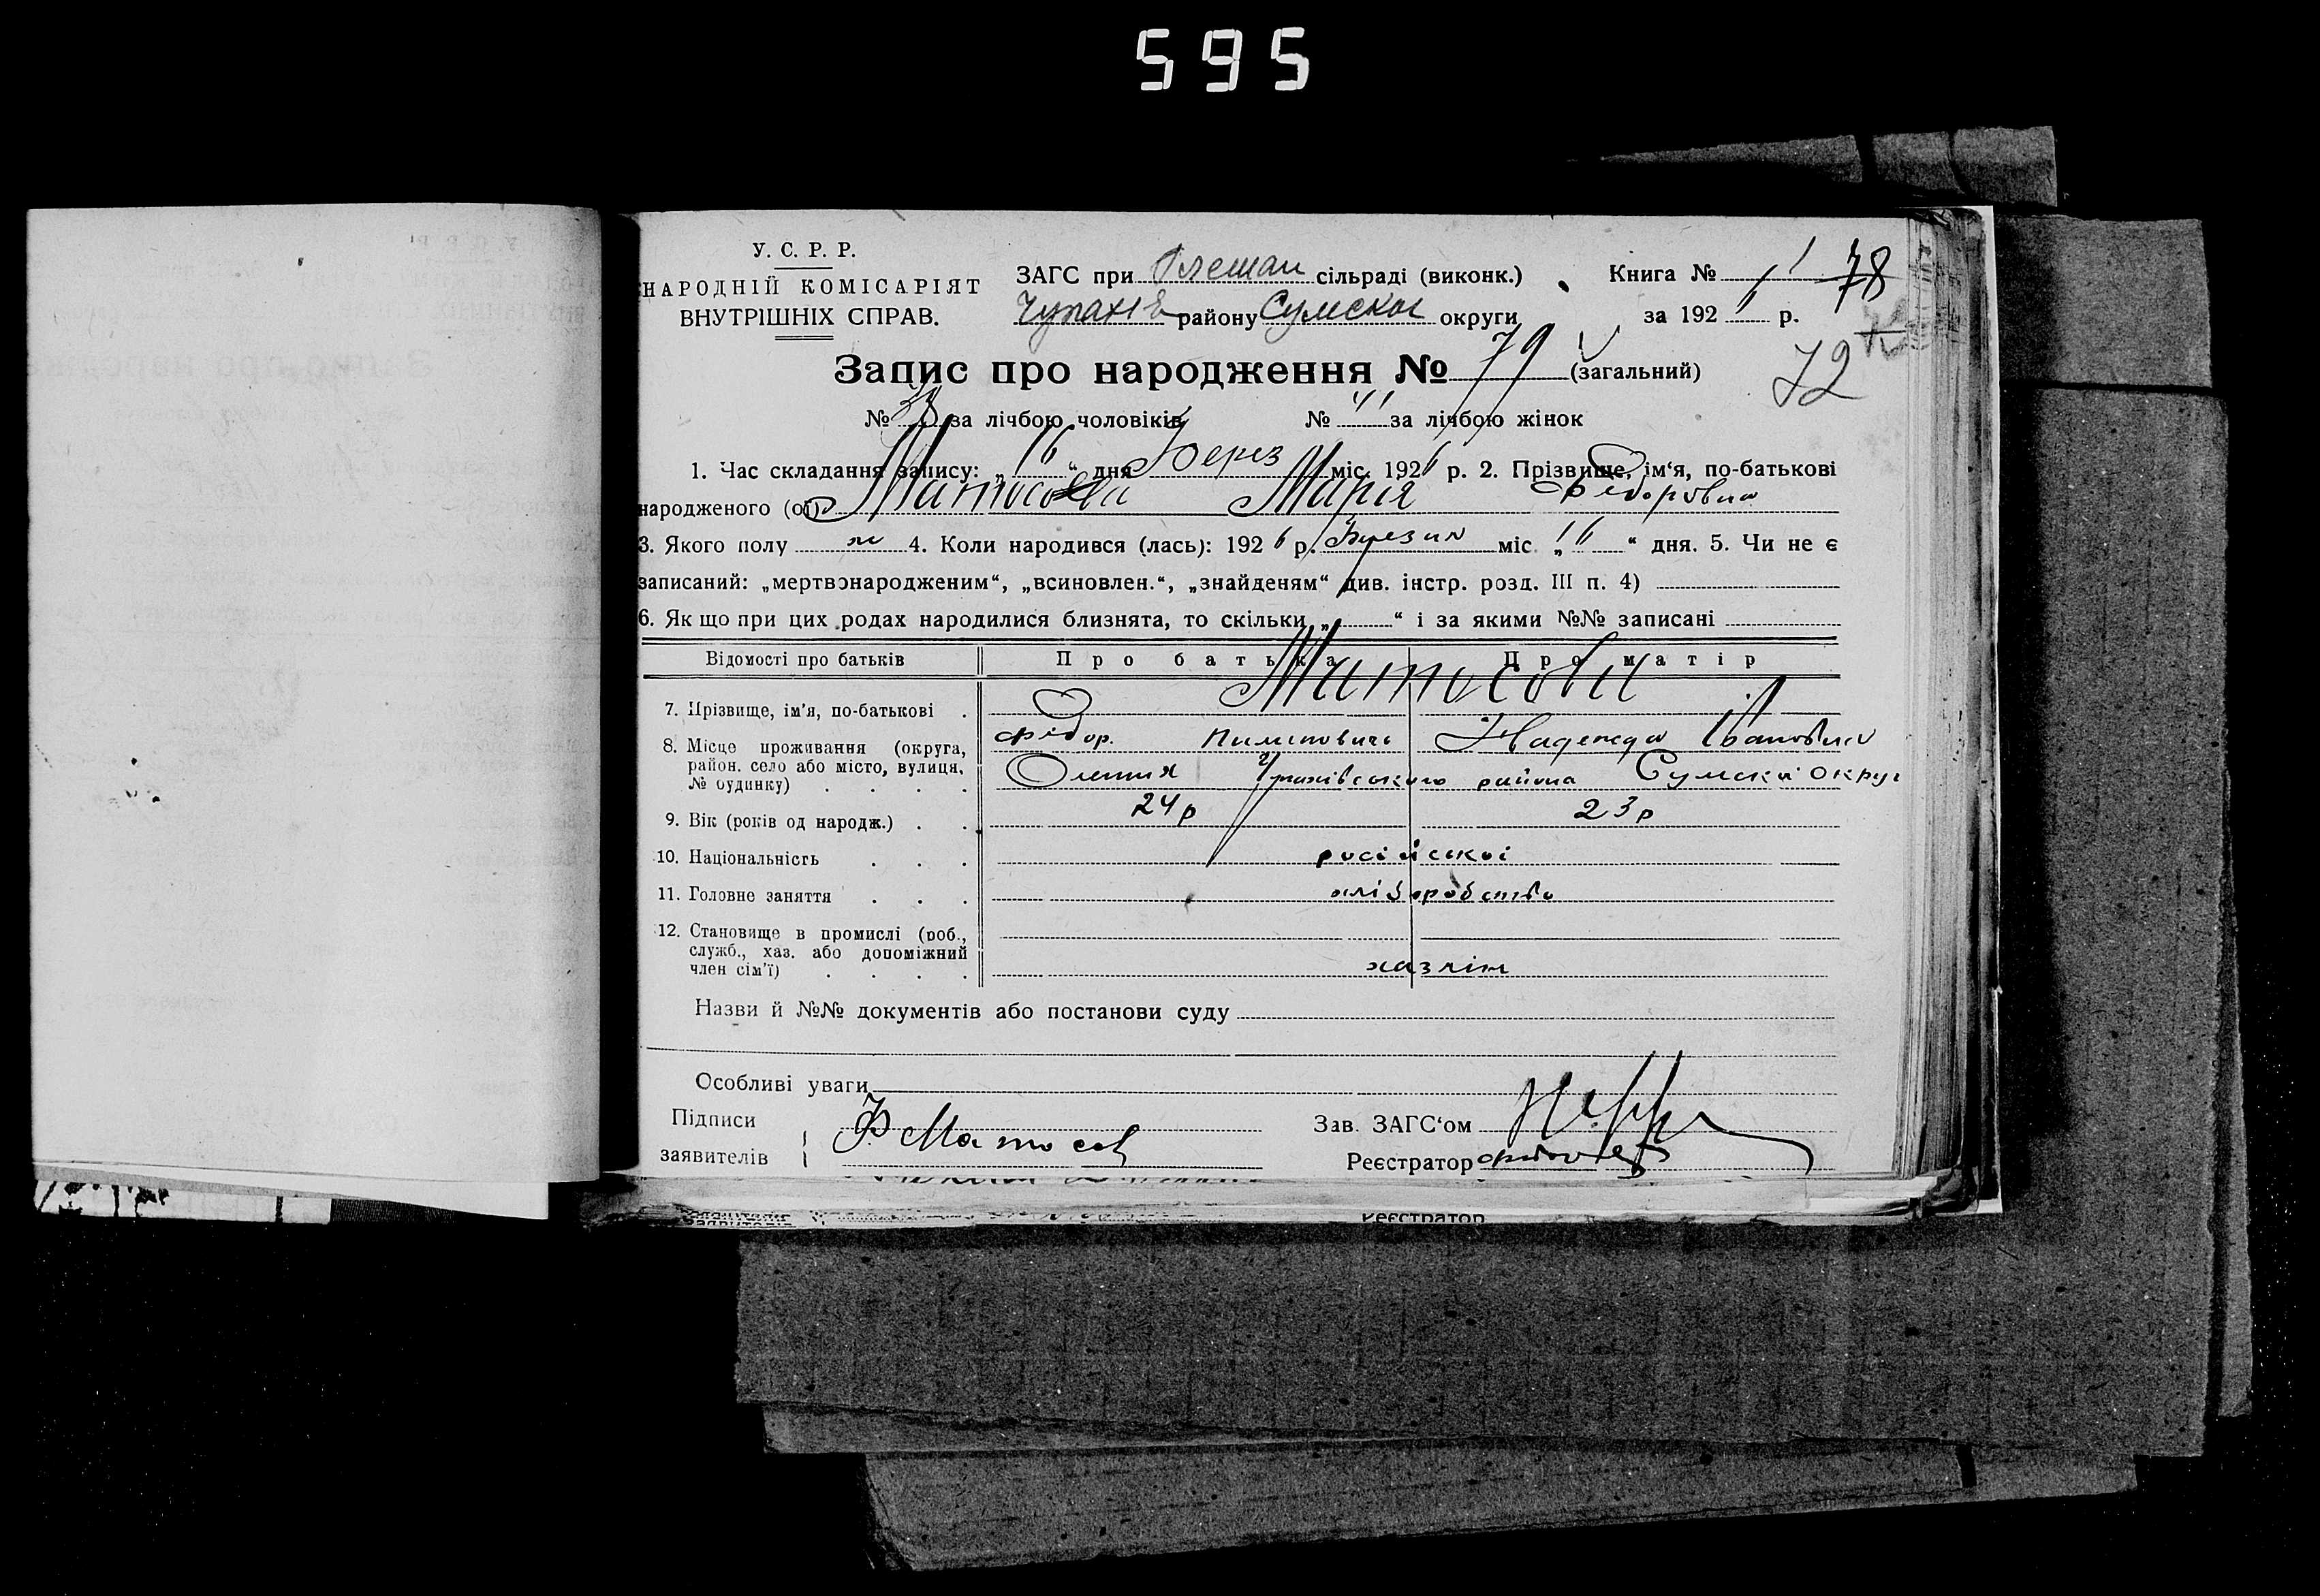 595
У. С. Р. Р.
НАРОДНІЙ КОМІСАРІЯТ
ВНУТРІШНІХ СПРАВ.
ЗАГС при сільраді (виконк.)
району Сумской округи
Книга № 1 78
за 192 р.
Запис про народження № 79 (загальний)
72
№ за лічбою чоловіків № 41 за лічбою жінок
1. Час складання запису: „16“ дня Берез міс. 1926 р. 2. Прізвище, ім‘я, по-батькові
народженого (ої) Матосова Марія Федоровна
3. Якого полу ж 4. Коли народився (лась): 1926 р. Березня міс „11“ дня. 5. Чи не є
записаний: „мертвонародженим“, „всиновлен.“, „знайденям“ див. інстр. розд. III п. 4)
6. Як що при цих родах народилися близнята, то скільки „ “ і за якими №№ записані
Відомості про батьків Про батька Про матір
Матосови
7. Прізвище, ім'я, по-батькові .
Федор. Надежда Івановна
8. Місце проживання (округа,
район. село або місто, вулиця,
№ будинку) . . . .
района Сумскої округ
9. Вік (років од народж.) . . 24р 23р
10. Національність . . . російської
11. Головне заняття . . . хліборобство
12. Становище в промислі (роб.,
служб., хаз. або допоміжний
член сім'ї) . . . .
хазяін
Назви й №№ документів або постанови суду
Особливі уваги
Підписи
заявителів
Ф Матосов
Зав. ЗАГС‘ом
Реєстратор
заявителів
Реєстратор